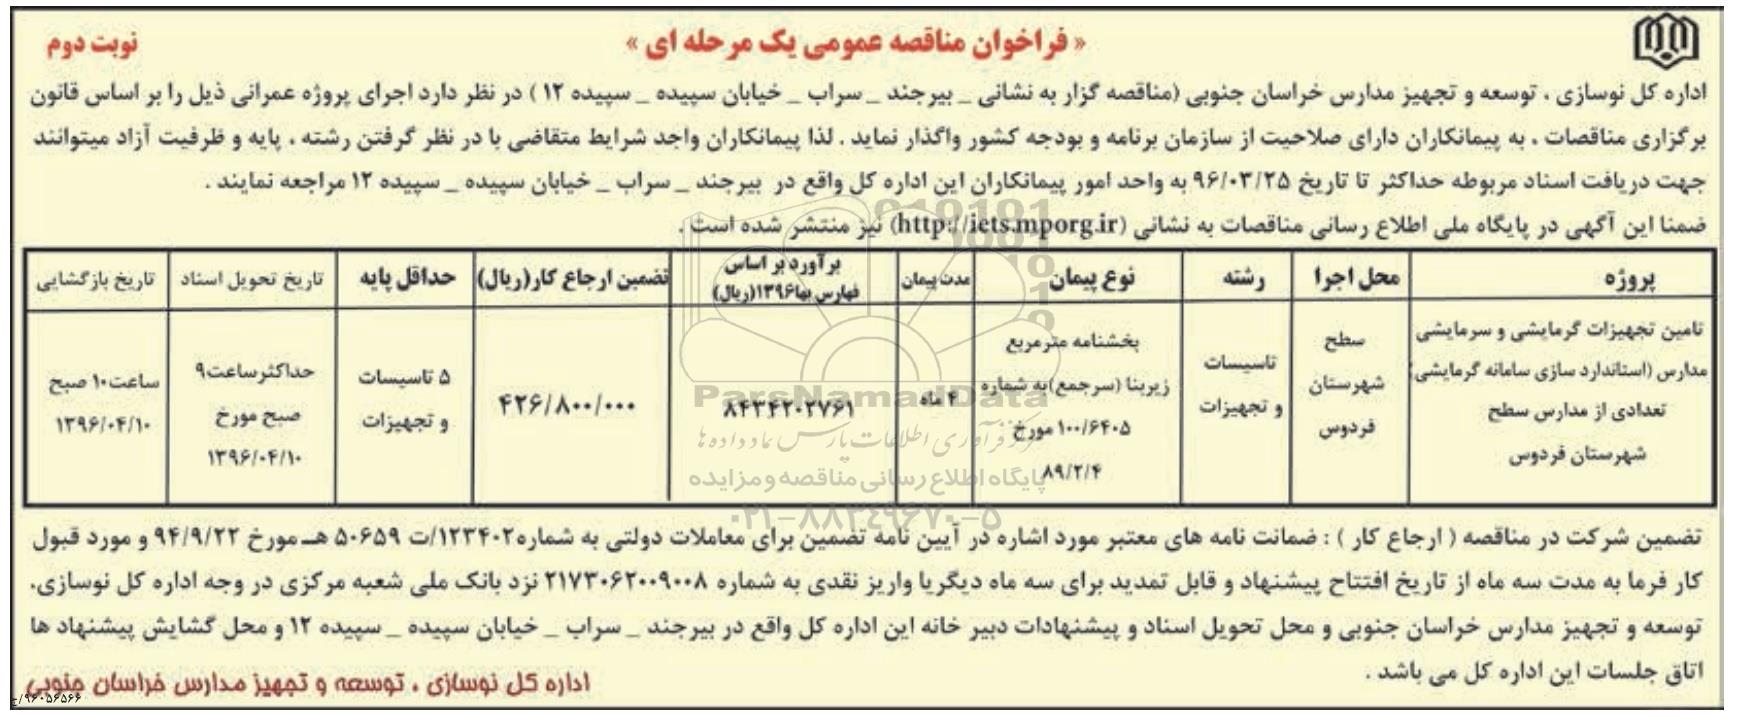 « فراخوان مناقصه عمومی یک مرحله ای »
نوبت دوم
اداره کل نوسازی ، توسعه و تجهیز مدارس خراسان جنوبی (مناقصه گزار به نشانی _ بیرجند _ سراب _ خیابان سپیده _ سپیده ۱۲ ) در نظر دارد اجرای پروژه عمرانی ذیل را بر اساس قانون
برگزاری مناقصات ، به پیمانکاران دارای صلاحیت از سازمان برنامه و بودجه کشور واگذار نماید . لذا پیمانکاران واجد شرایط متقاضی با در نظر گرفتن رشته ، پایه و ظرفیت آزاد میتوانند
جهت دریافت اسناد مربوطه حداکثر تا تاریخ ۹۶/۰۳/۲۵ به واحد امور پیمانکاران این اداره کل واقع در بیرجند _ سراب _ خیابان سپیده _ سپیده ۱۲ مراجعه نمایند .
ضمنا این آگهی در پایگاه ملی اطلاع رسانی مناقصات به نشانی (http://iets.mporg.ir) نیز منتشر شده است .
پروژه
محل اجرا
رشته
نوع پیمان
مدت پیمان
برآورد بر اساس
فهارس بها۱۳۹۶(ریال)
تضمین ارجاع کار(ریال)
حداقل پایه
تاریخ تحویل اسناد
تاریخ بازگشایی
تامین تجهیزات گرمایشی و سرمایشی
مدارس (استاندارد سازی سامانه گرمایشی)
تعدادی از مدارس سطح
شهرستان فردوس
سطح
شهرستان
فردوس
تاسیسات
و تجهیزات
بخشنامه مترمربع
زیربنا (سرجمع)به شماره
۱۰۰/۶۴۰۵ مورخ
۸۹/۲/۴
۴ ماه
۸۴۳۴۲۰۲۷۶۱
۴۲۶/۸۰۰/۰۰۰
۵ تاسیسات
و تجهیزات
حداکثرساعت۹
صبح مورخ
۱۳۹۶/۰۴/۱۰
ساعت۱۰ صبح
۱۳۹۶/۰۴/۱۰
ParsNamadData
مرکز فرآوری اطلاعات پارس نماد داده ها
پایگاه اطلاع رسانی مناقصه و مزایده
۰۲۱-۸۸۳۴۹۶۷۰-۵
تضمین شرکت در مناقصه ( ارجاع کار ) : ضمانت نامه های معتبر مورد اشاره در آیین نامه تضمین برای معاملات دولتی به شماره۱۲۳۴۰۲/ت ۵۰۶۵۹ هـ مورخ ۹۴/۹/۲۲ و مورد قبول
کار فرما به مدت سه ماه از تاریخ افتتاح پیشنهاد و قابل تمدید برای سه ماه دیگریا واریز نقدی به شماره ۲۱۷۳۰۶۲۰۰۹۰۰۸ نزد بانک ملی شعبه مرکزی در وجه اداره کل نوسازی،
توسعه و تجهیز مدارس خراسان جنوبی و محل تحویل اسناد و پیشنهادات دبیر خانه این اداره کل واقع در بیرجند _ سراب _ خیابان سپیده _ سپیده ۱۲ و محل گشایش پیشنهاد ها
اتاق جلسات این اداره کل می باشد .
اداره کل نوسازی ، توسعه و تجهیز مدارس خراسان جنوبی
۹۶۰۵۶۵۶۶/ج